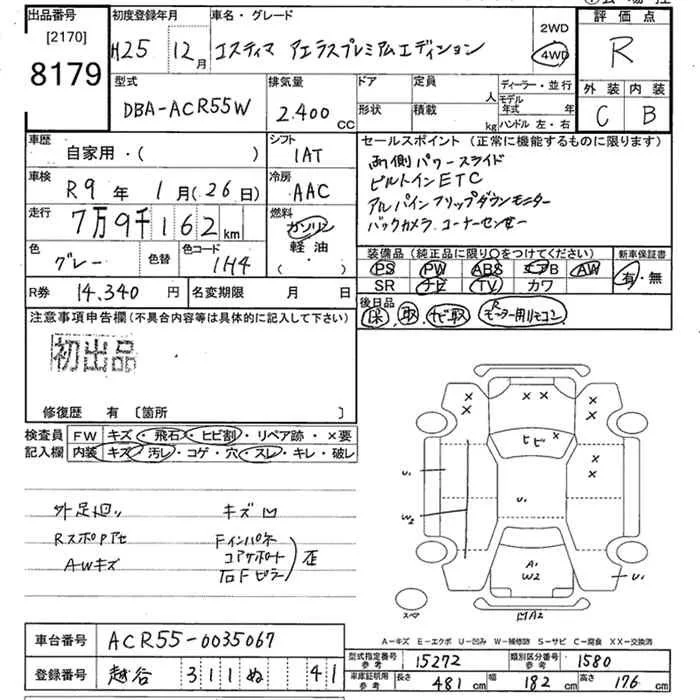 出品番号
[2170]
8179
初度登録年月
H25 12月
車名・グレード
エスティマ アエラスプレミアムエディション
2WD
4WD
評価点
R
外装 内装
C B
型式
DBA-ACR55W
排気量
2.400 CC
ドア
形状
定員 人
積載 kg
ディーラー・並行
モデル年式 年
ハンドル 左・右
車歴
自家用・( )
シフト
IAT
車検
R9年 1月(26日)
冷房
AAC
走行
7万9千162km
燃料
ガソリン
軽油
( ・ )
色
グレー
色替
色コード
1H4
セールスポイント(正常に機能するものに限ります)
両側パワースライド
ビルトインETC
アルパインフリップダウンモニター
バックカメラ、コーナーセンサー
装備品(純正品に限り○をつけてください)
PS PW ABS エアB AW
SR ナビ TV カワ
新車保証書
有・無
R券 14.340円
名変期限 月 日
後日品
保、取、ナビ取 Rモーター用リモコン
注意事項申告欄(不具合内容等は具体的に記入して下さい)
初出品
修復歴 有〔箇所 〕
検査員記入欄
FW キズ・飛石・ヒビ割・リペア跡・×要
内装 キズ・汚レ・コゲ・穴・スレ・キレ・破レ
外足廻り キズ凹
RスポPアセ Fインパネ
AWキズ コアサポート
右Fピラー
歪
ヒビ
U1
W2
U1
A1
W2
U1
スペア
A2
A−キズ E−エクボ U−凹み W−補修跡 S−サビ C−腐食 XX−交換済
車台番号 ACR55-0035067
登録番号 越谷 311 ぬ 41
型式指定番号 参考 15272
類別区分番号 参考 1580
車庫証明用 参考 長さ 481cm 幅 182cm 高さ 176cm